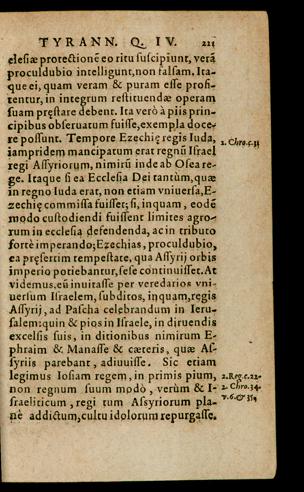 TYRANN. Q. IV. 221
elesiæ protectionē eo ritu suscipiunt, verā
proculdubio intelligunt, non falsam. Ita-
que ei, quam veram & puram esse profi-
tentur, in integrum restituendæ operam
suam pręstare debent. Ita verò à piis prin-
cipibus obseruatum fuisse, exempla doce-
re possunt. Tempore Ezechię regis Iuda,
2. Chro. c. 31
iampridem mancipatum erat regnū Israel
regi Assyriorum, nimirū inde ab Osea re-
ge. Itaque si ea Ecclesia Dei tantùm, quæ
in regno Iuda erat, non etiam vniuersa, E-
zechię commissa fuisset; si, inquam, eodē
modo custodiendi fuissent limites agro-
rum in ecclesia defendenda, ac in tributo
fortè imperando; Ezechias, proculdubio,
ea pręsertim tempestate, qua Assyrij orbis
imperio potiebantur, sese continuisset. At
videmus, eū inuitasse per veredarios vni-
uersum Israelem, subditos, inquam, regis
Assyrij, ad Pascha celebrandum in Ieru-
salem: quin & pios in Israele, in diruendis
excelsis suis, in ditionibus nimirum E-
phraim & Manasse & cæteris, quæ As-
syriis parebant, adiuuisse. Sic etiam
legimus Iosiam regem, in primis pium,
2. Reg. c. 22.
non regnum suum modò, verùm & I-
2. Chro. 34.
sraeliticum, regi tum Assyriorum pla-
v. 6. & 35.
nè addictum, cultu idolorum repurgasse.